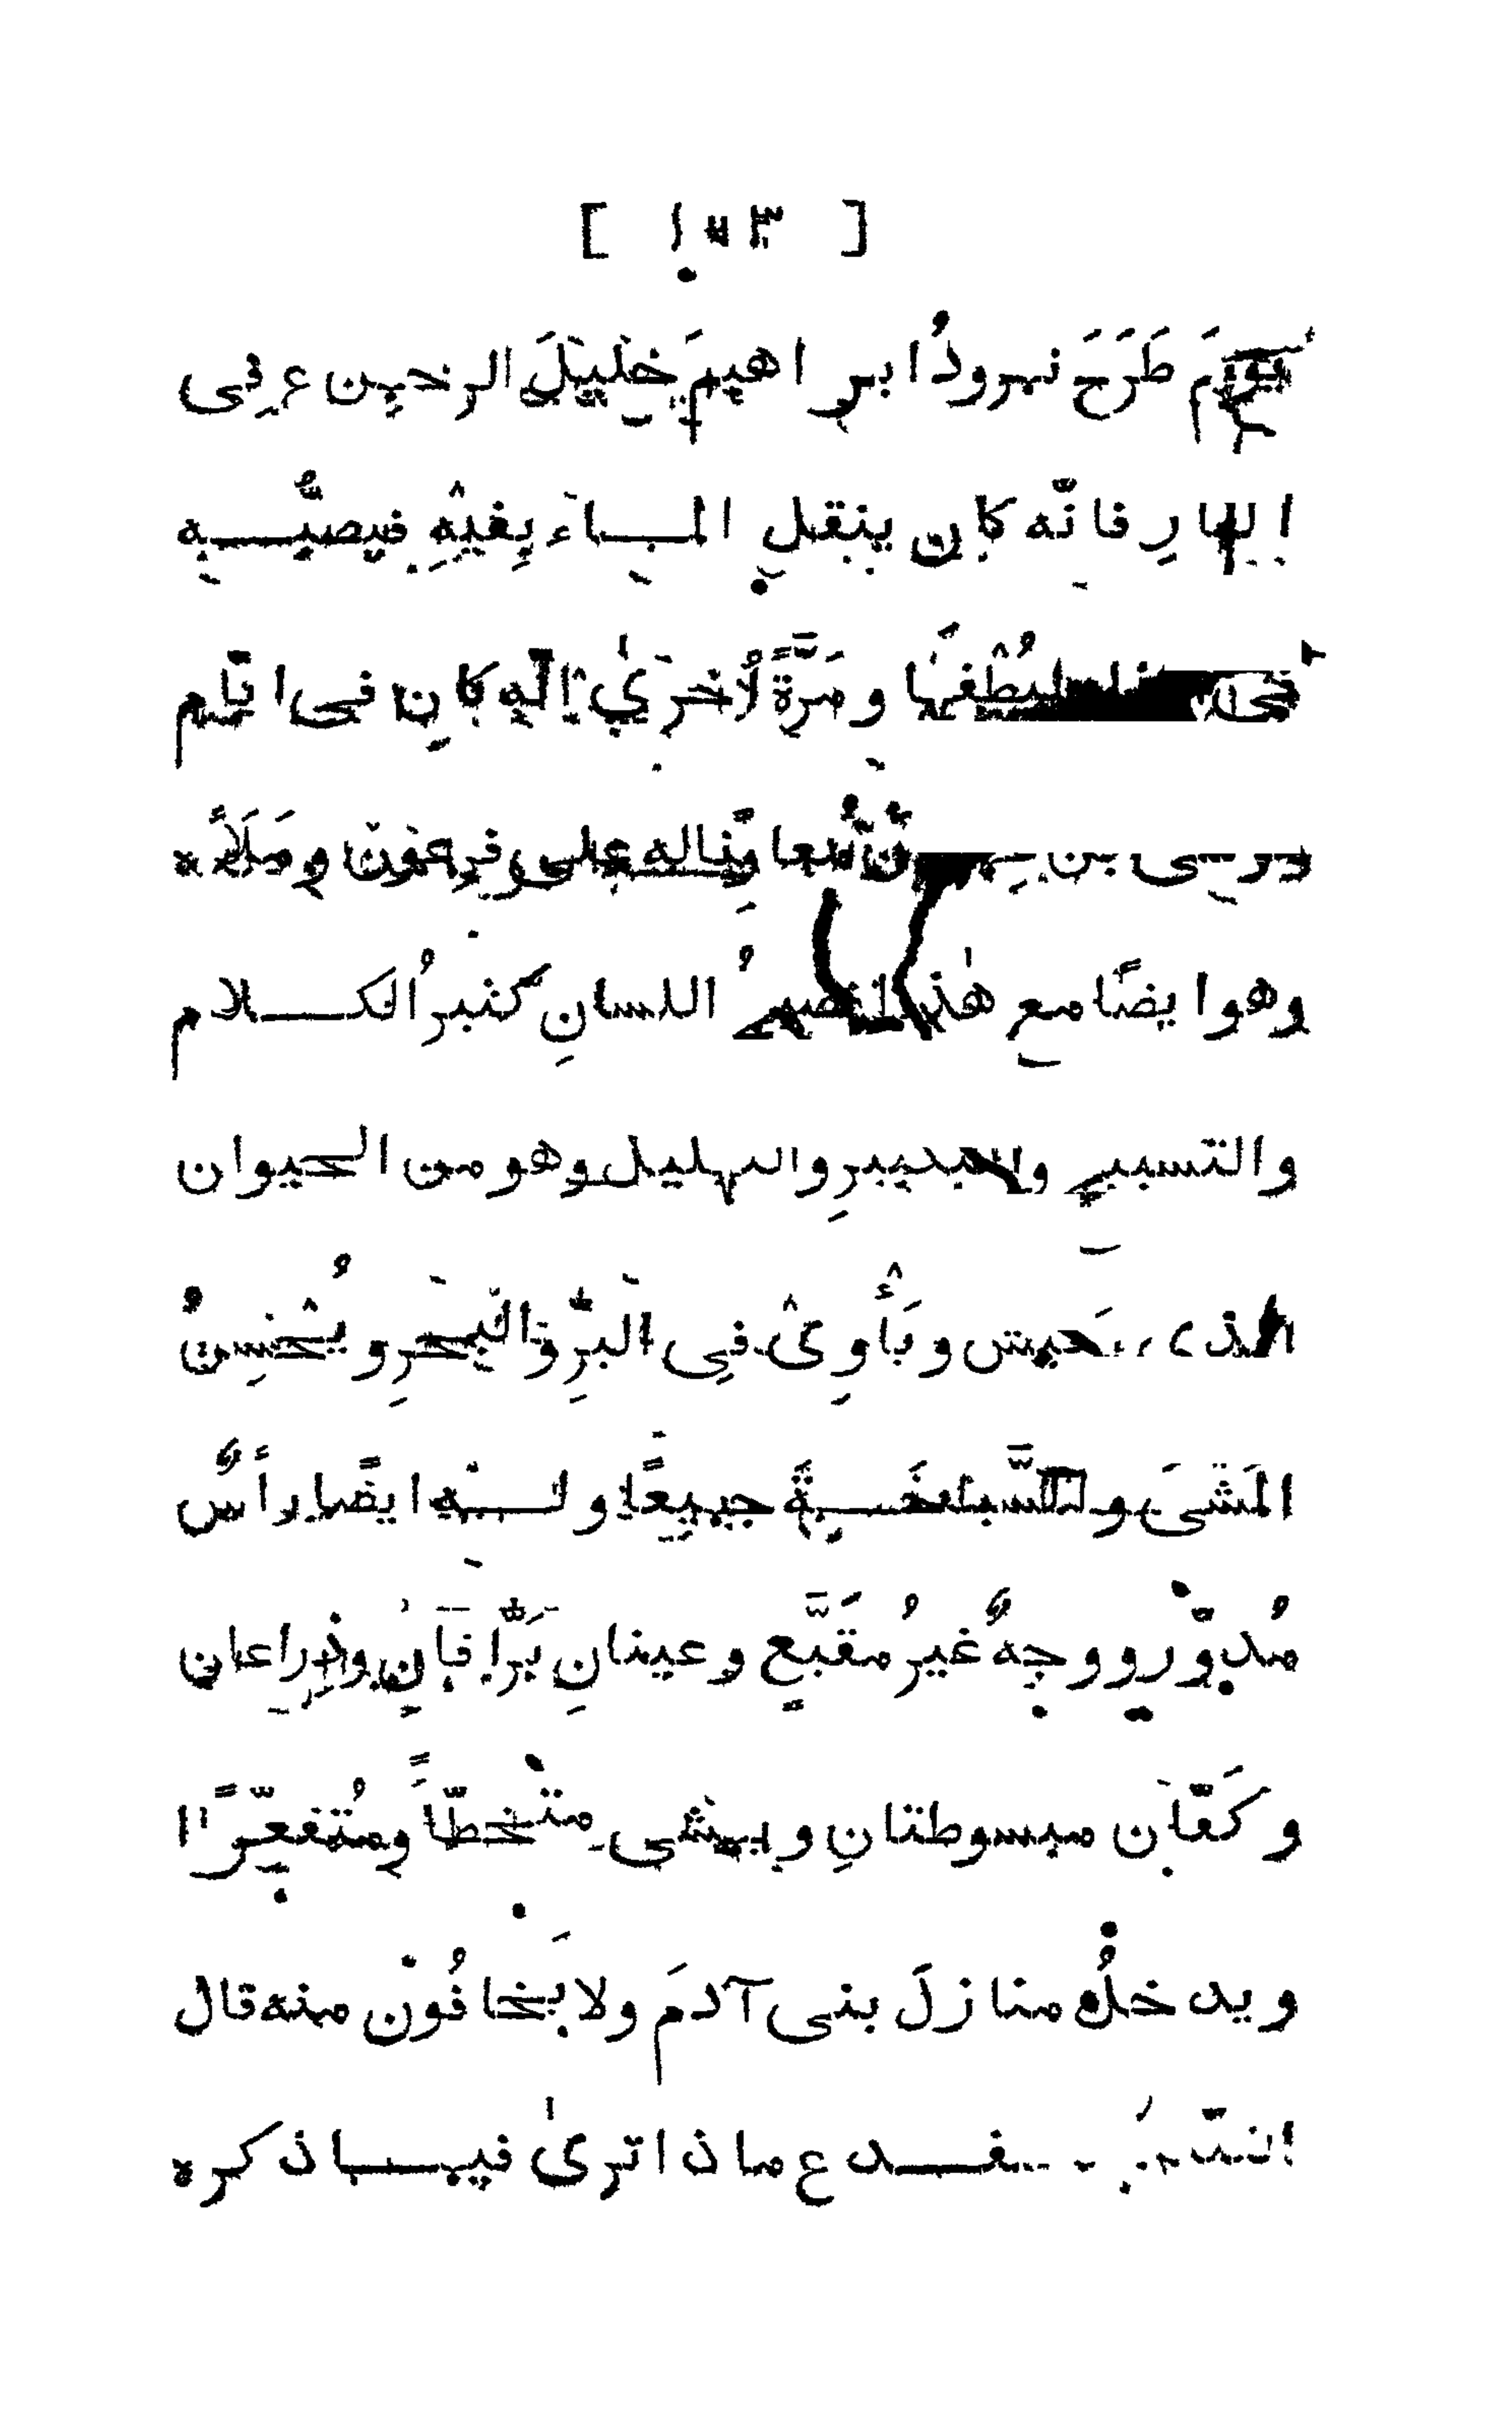 يومَ طَرَحَ نمرودُ ابراهيمَ خليلَ الرحمن ع فى
النارِ فانّه كان ينقل الماءَ بِفَيْهِ فيصبُّه
ليُطْفئها ومَرَّةً اُخرَىٰ انّه كان فى ايّام
موسى بن معاونًا له على فرعون ومَلَأه
وهو ايضًا مع هٰذا فصيحُ اللسانِ كثيرُ الكلام
والتسبيح والتكبيرِ والتهليل وهو من الحيوان
الذى يَعيش ويَأْوِىْ فى البَرِّ والبَحْرِ ويُحْسِنُ
المَشْىَ والسَّباحَةَ جميعًا وله ايضًا رأسٌ
مُدوَّر ووجهٌ غيرُ مقَبَّحٍ وعينانِ بَرَّاقَانِ وذِراعان
وكَفّان مبسوطتانِ ويمشى متخطّيًا ومُتقفّزًا
ويدخلُ منازلَ بنى آدمَ ولا يَخافُون منه قال
ع ماذا ترىٰ فيما ذكره